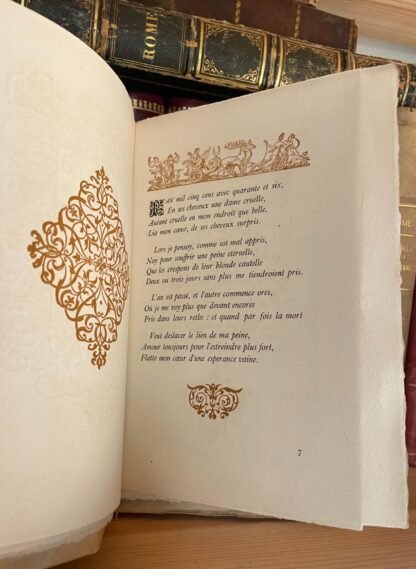 ROME
L'AN mil cinq cens avec quarante et six,
En ses cheveux une dame cruelle,
Autant cruelle en mon endroit que belle,
Lia mon cœur, de ses cheveux surpris.
Lors je pensoy, comme sot mal appris,
Nay pour souffrir une peine eternelle,
Que les crespons de leur blonde cautelle
Deux ou trois jours sans plus me tiendroient pris.
L'an est passé, et l'autre commence ores,
Où je me voy plus que devant encores
Pris dans leurs reths : et quand par fois la mort
Veut deslacer le lien de ma peine,
Amour tousjours pour l'estreindre plus fort,
Flatte mon cœur d'une esperance vaine.
7